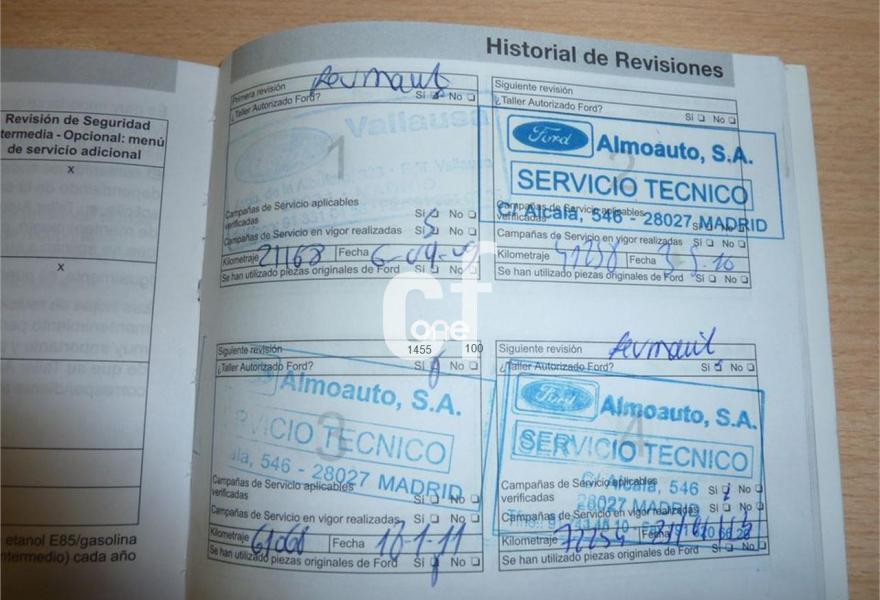 Historial de Revisiones
Revisión de Seguridad
termedia - Opcional: menú
de servicio adicional
x
x
etanol E85/gasolina
ntermedio) cada año
Primera revisión
¿Taller Autorizado Ford? Sí No
Vallausa
1
Campañas de Servicio aplicables
verificadas Sí No
Campañas de Servicio en vigor realizadas Sí No
Kilometraje 21168 Fecha 6-09-
Se han utilizado piezas originales de Ford Sí No
Siguiente revisión
¿Taller Autorizado Ford? Sí No
Ford Almoauto, S.A.
2
SERVICIO TECNICO
Alcalá, 546 - 28027 MADRID
Campañas de Servicio aplicables
verificadas Sí No
Campañas de Servicio en vigor realizadas Sí No
Kilometraje Fecha
Se han utilizado piezas originales de Ford Sí No
cf
one
1455 100
Siguiente revisión
¿Taller Autorizado Ford? Sí No
Almoauto, S.A.
3
RVICIO TECNICO
546 - 28027 MADRID
Campañas de Servicio aplicables
verificadas Sí No
Campañas de Servicio en vigor realizadas Sí No
Kilometraje Fecha 18-1-11
Se han utilizado piezas originales de Ford Sí No
Siguiente revisión
¿Taller Autorizado Ford? Sí No
Ford Almoauto, S.A.
4
SERVICIO TECNICO
Alcalá, 546
28027 MADRID
Campañas de Servicio aplicables
verificadas Sí No
Campañas de Servicio en vigor realizadas Sí No
Kilometraje Fecha
Se han utilizado piezas originales de Ford Sí No